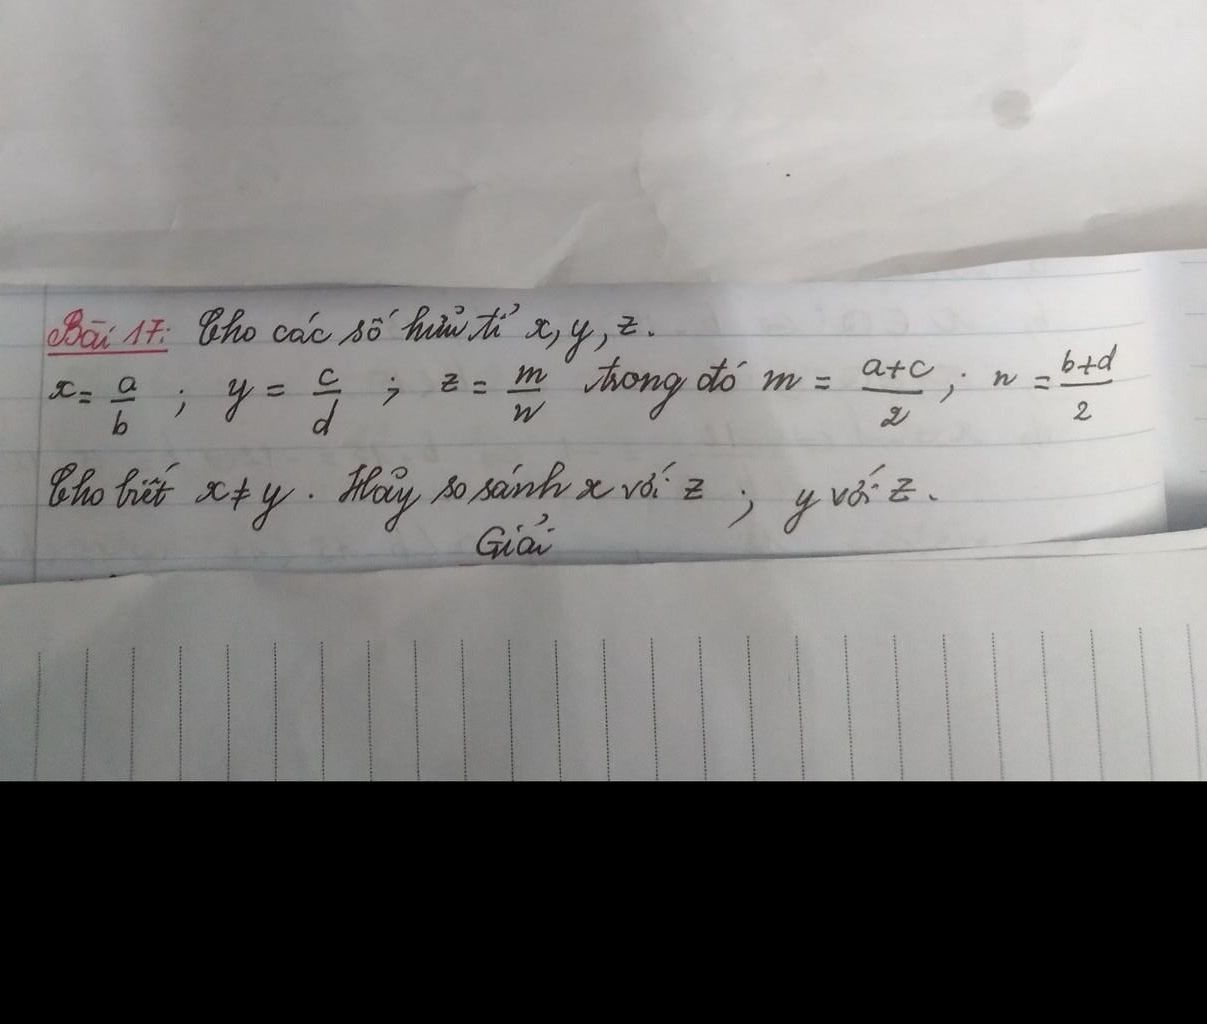 Bài 17: Cho các số hữu tỉ x, y, z.
x = a/b ; y = c/d ; z = m/n trong đó m = (a+c)/2 ; n = (b+d)/2
Cho biết x ≠ y. Hãy so sánh x với z ; y với z.
Giải